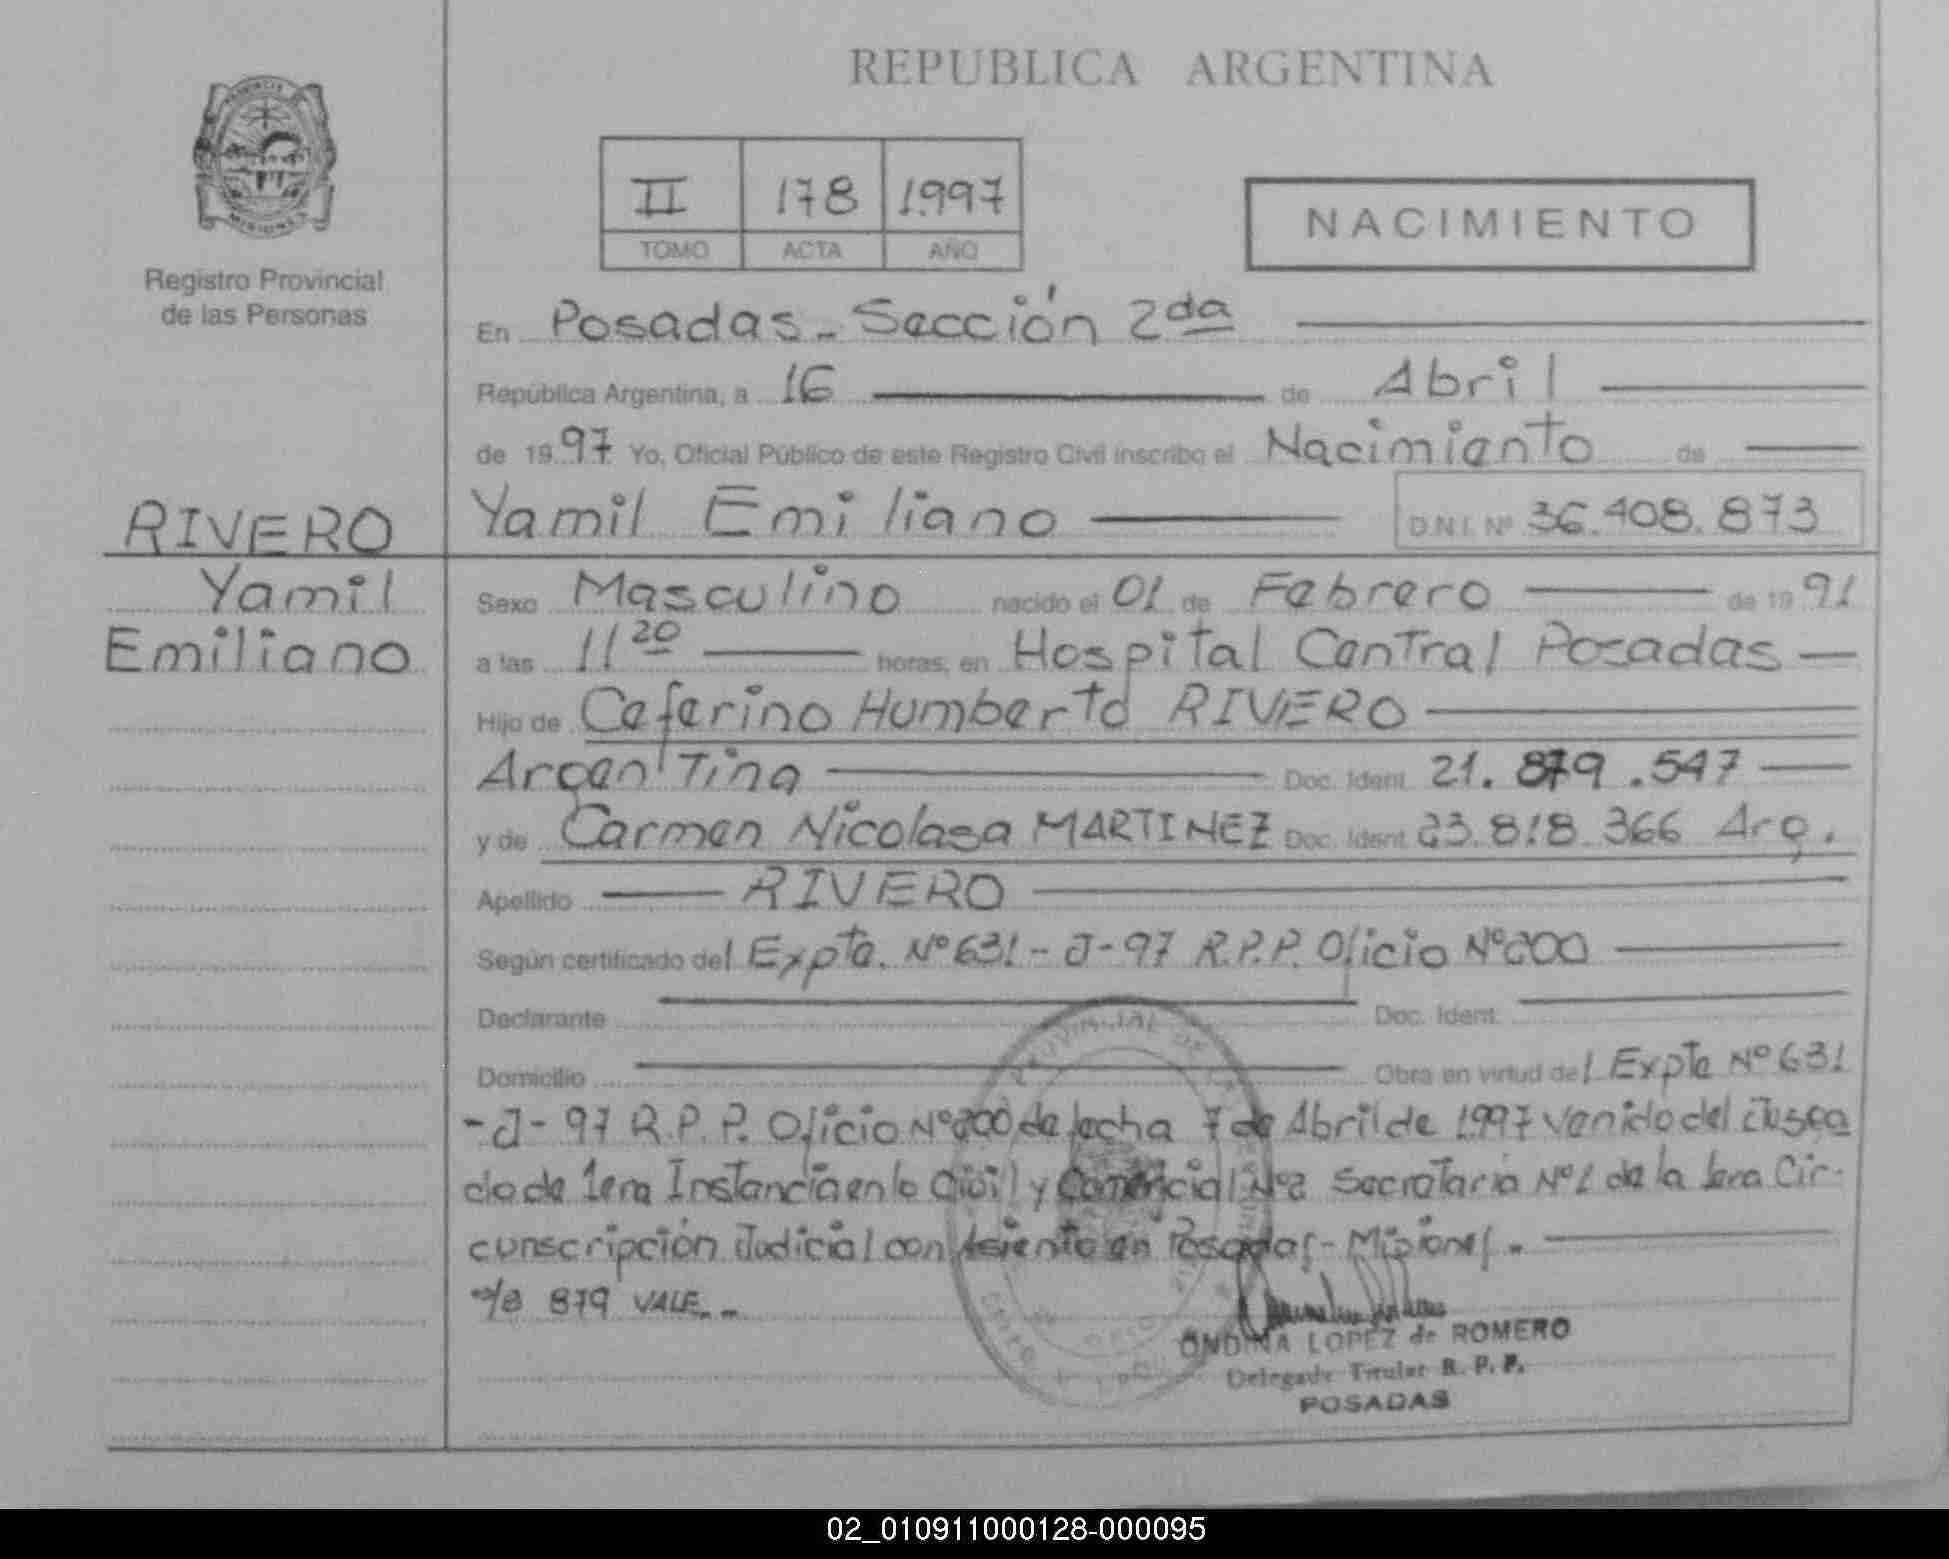 REPUBLICA ARGENTINA
II 178 1997
TOMO ACTA AÑO
NACIMIENTO
Registro Provincial
de las Personas
En Posadas - Sección 2da
República Argentina, a 16 de Abril
de 1997 Yo, Oficial Público de este Registro Civil inscribo el Nacimiento de
RIVERO
Yamil Emiliano D.N.I. Nº 36.408.873
Yamil
Emiliano
Sexo Masculino nacido el 01 de Febrero de 1991
a las 11 20 horas, en Hospital Central Posadas
Hijo de Ceferino Humberto RIVERO
Argentina Doc. Ident. 21.879.547
y de Carmen Nicolasa MARTINEZ Doc. Ident. 23.818.366 Arg.
Apellido RIVERO
Según certificado del Expte. Nº 631 - J - 97 R.P.P. Oficio Nº 200
Declarante Doc. Ident.
Domicilio Obra en virtud del Expte Nº 631
- J - 97 R.P.P. Oficio Nº 200 de fecha 7 de Abril de 1997 venido del Juzga
do de 1era Instancia en lo Civil y Comercial Nº 2 Secretaria Nº 1 de la 1era Cir-
cunscripción Judicial con Asiento en Posadas - Misiones.
s/b 879 VALE.
ONDINA LOPEZ de ROMERO
Delegada Titular R. P. P.
POSADAS
02_010911000128-000095